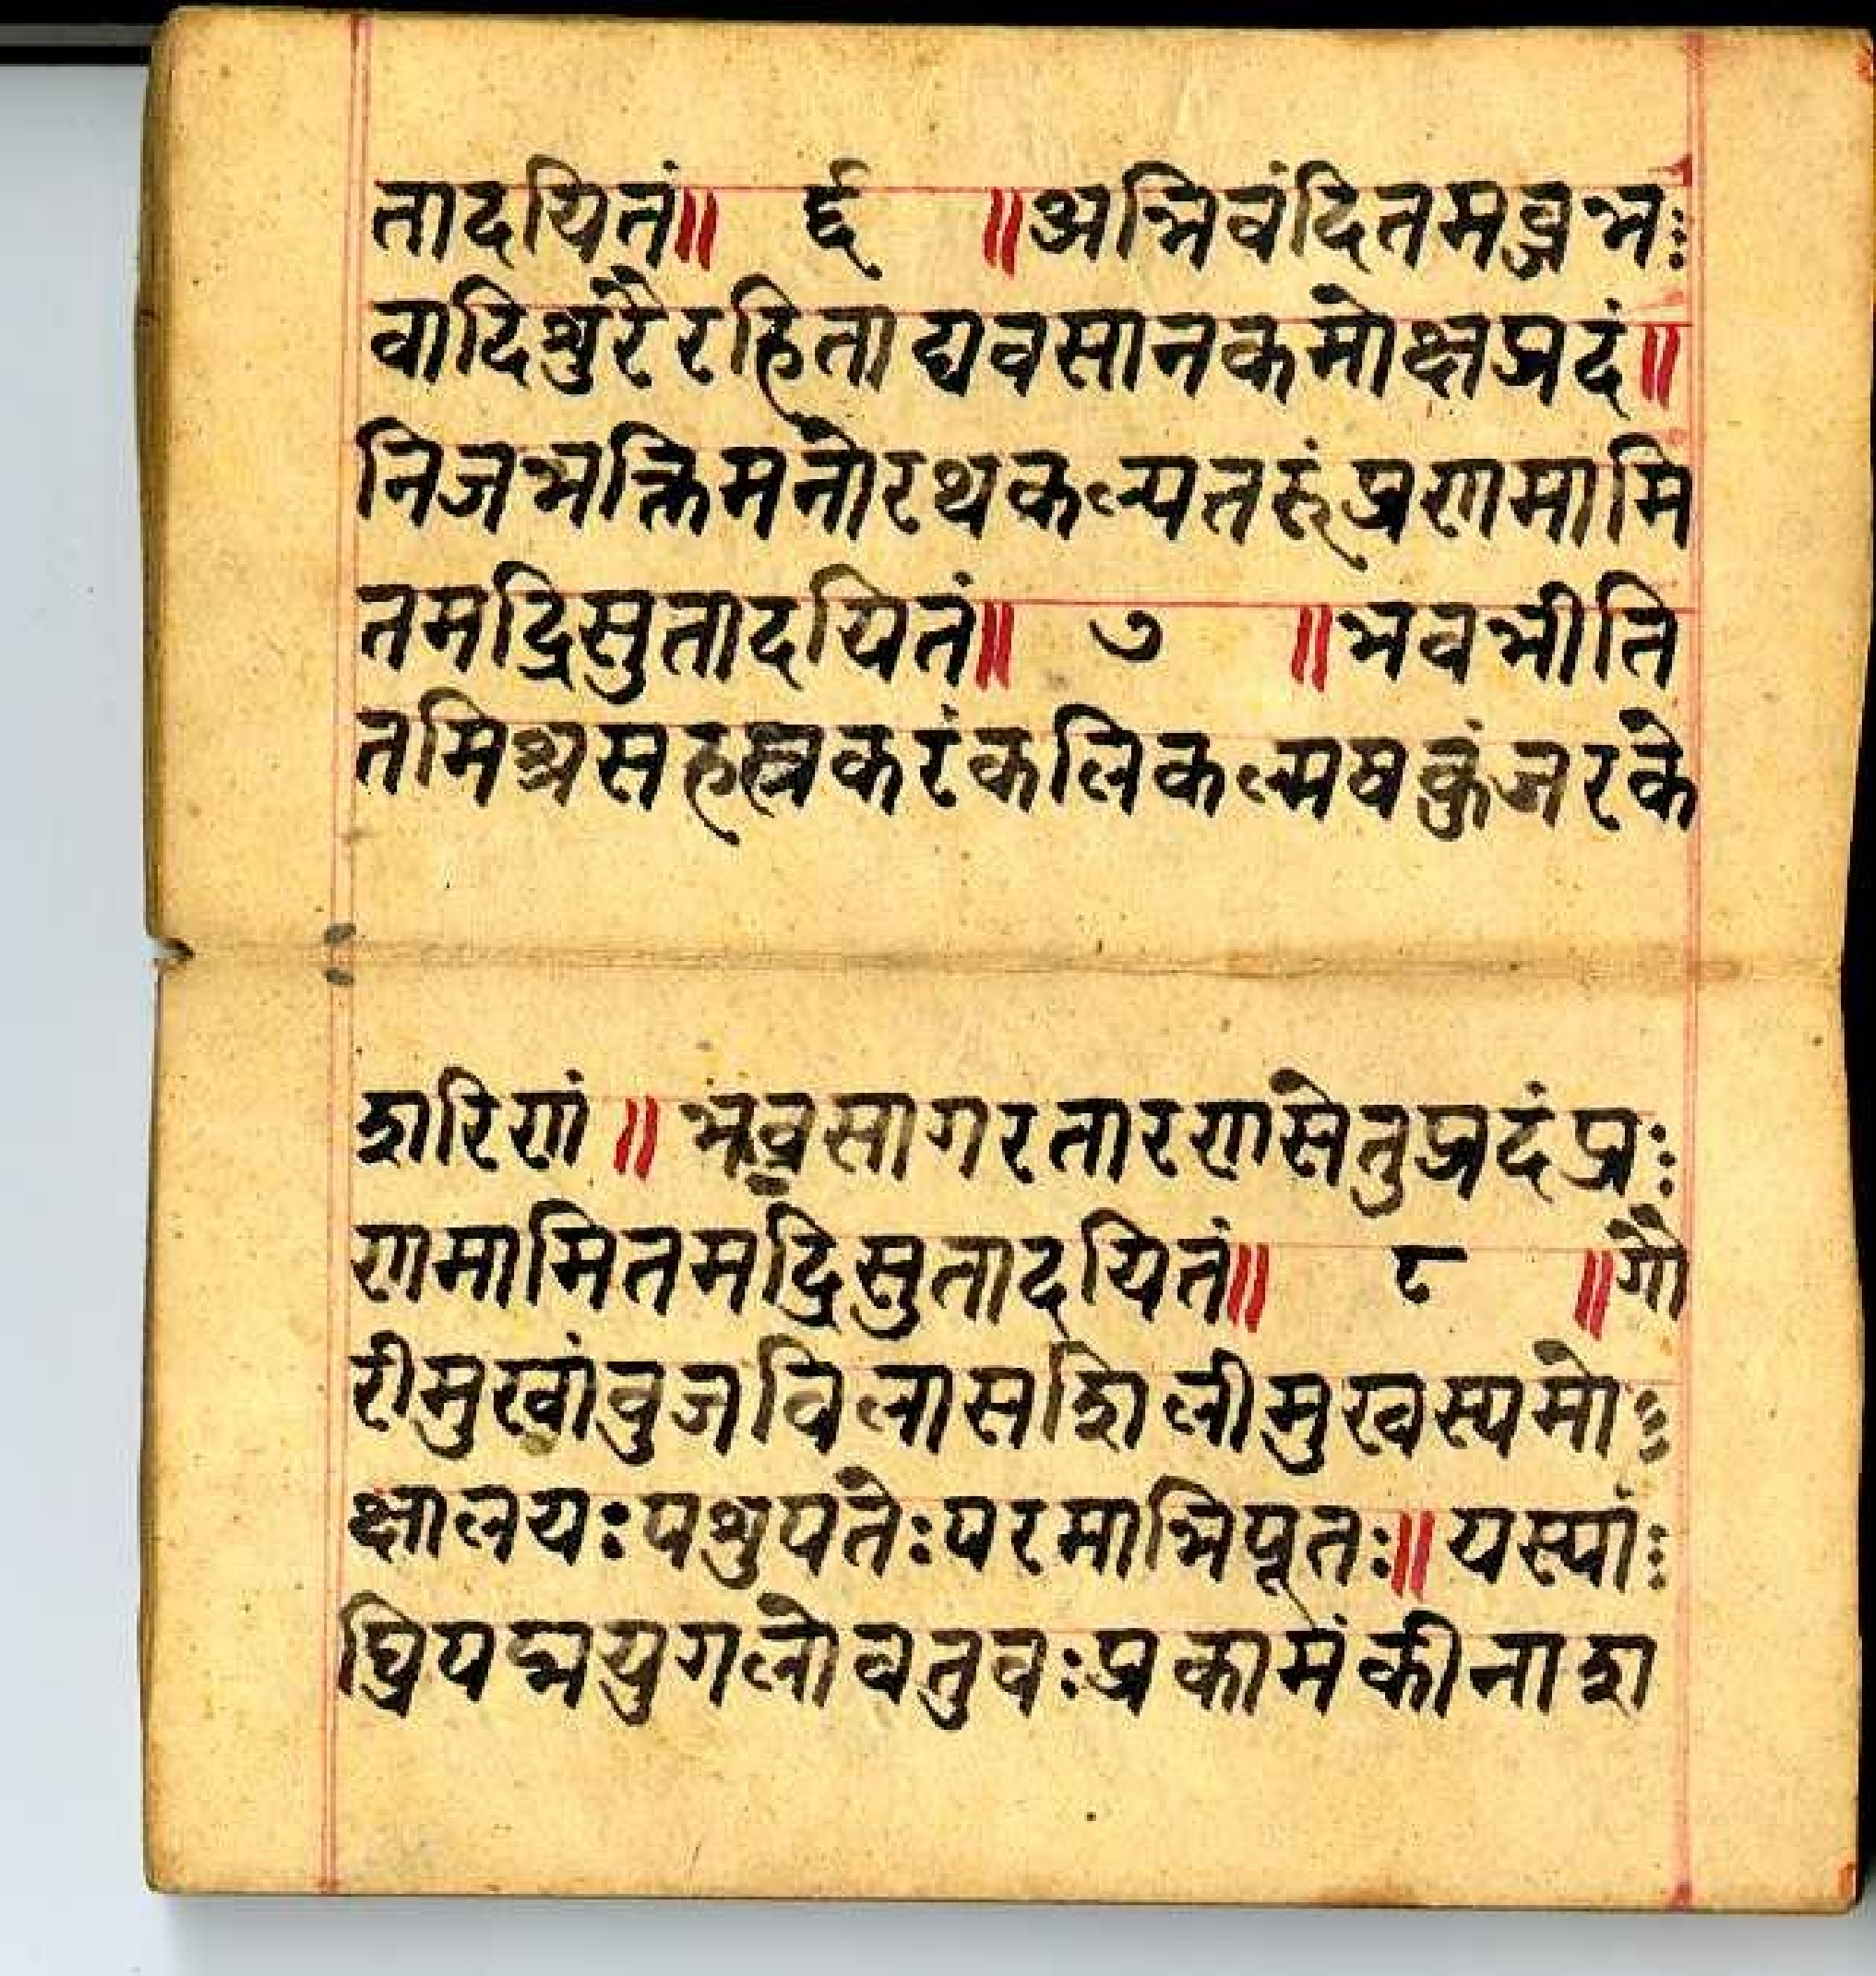 तादयितं॥ ६ ॥अभिवंदितमब्जभ
वादिशुरैरहिताद्यवसानकमोक्षप्रदं॥
निजभक्तिमनोरथकल्पतरुंप्रणमामि
तमद्रिसुतादयितं॥ ७ ॥भवभीति
तमिश्रसहस्रकरंकलिकल्मषकुंजरके
शरिणं॥भवसागरतारणसेतुप्रदंप्र
णमामितमद्रिसुतादयितं॥ ८ ॥गौ
रीमुखांवुजविलासशिलीमुखस्यमो
क्षालयःपशुपतेःपरमाभिपूतः॥यस्यां
घ्रिपद्मयुगलोवतुवःप्रकामंकीनाश